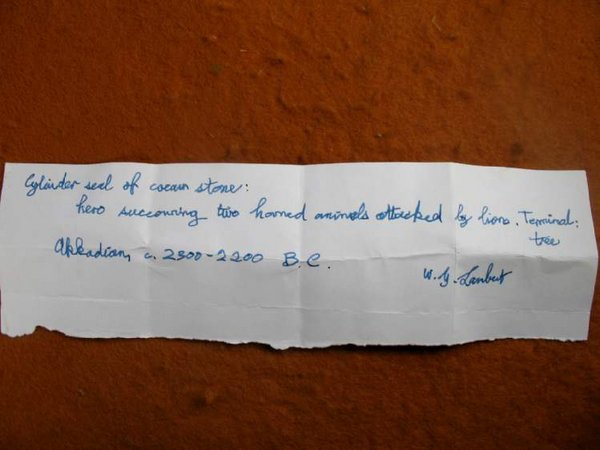 Cylinder seal of cocoun stone:
hero succouring two horned animals attacked by lions. Terminal:
tree
Akkadian, c. 2300-2200 B.C.
W.G. Lambert